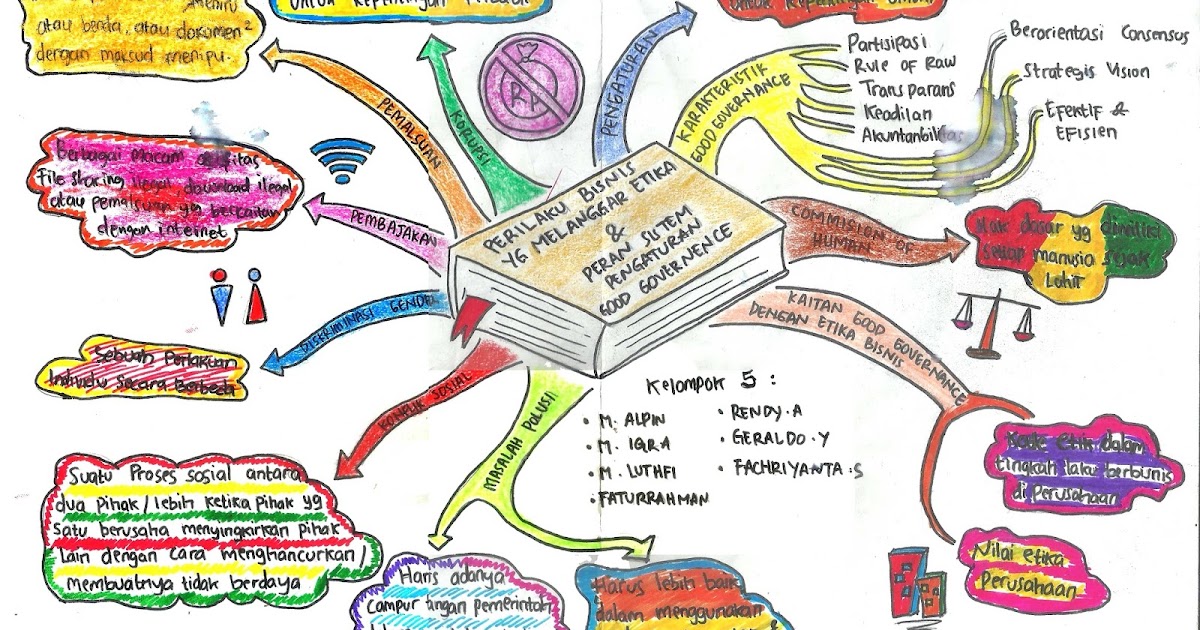 meniru
atau benda, atau dokumen²
dengan maksud menipu.
untuk kepentingan
untuk kepentingan umum
PEMALSUAN
KORUPSI
RP
PENGATURAN
KARAKTERISTIK
GOOD GOVERNANCE
Partisipasi
Rule of Raw
Transparans
Keadilan
Akuntanbilitas
Berorientasi Consensus
Strategis Vision
Efektif &
Efisien
Berbagai macam
File sharing ilegal, download ilegal
atau pemalsuan yg berkaitan
dengan internet
PEMBAJAKAN
PERILAKU BISNIS
YG MELANGGAR ETIKA
&
PERAN SISTEM
PENGATURAN
GOOD GOVERNENCE
COMMISION OF
HUMAN
Hak dasar yg dimiliki
setiap manusia sejak
Lahir
DISKRIMINASI GENDER
Sebuah Perlakuan
Individu Secara Berbeda
KAITAN GOOD GOVERNANCE
DENGAN ETIKA BISNIS
KONFLIK SOSIAL
MASALAH POLUSI
Kelompok 5 :
• M. ALPIN
• M. IQRA
• M. LUTHFI
• FATURRAHMAN
• RENDY.A
• GERALDO.Y
• FACHRIYANTA.S
Kode etik dalam
tingkah laku berbisnis
di perusahaan
Suatu Proses sosial antara
dua pihak / lebih ketika pihak yg
satu berusaha menyingkirkan pihak
Lain dengan cara menghancurkan /
membuatnya tidak berdaya
Nilai etika
Perusahaan
Harus adanya
Campur tangan pemerintah
Harus lebih baik
dalam menggunakan